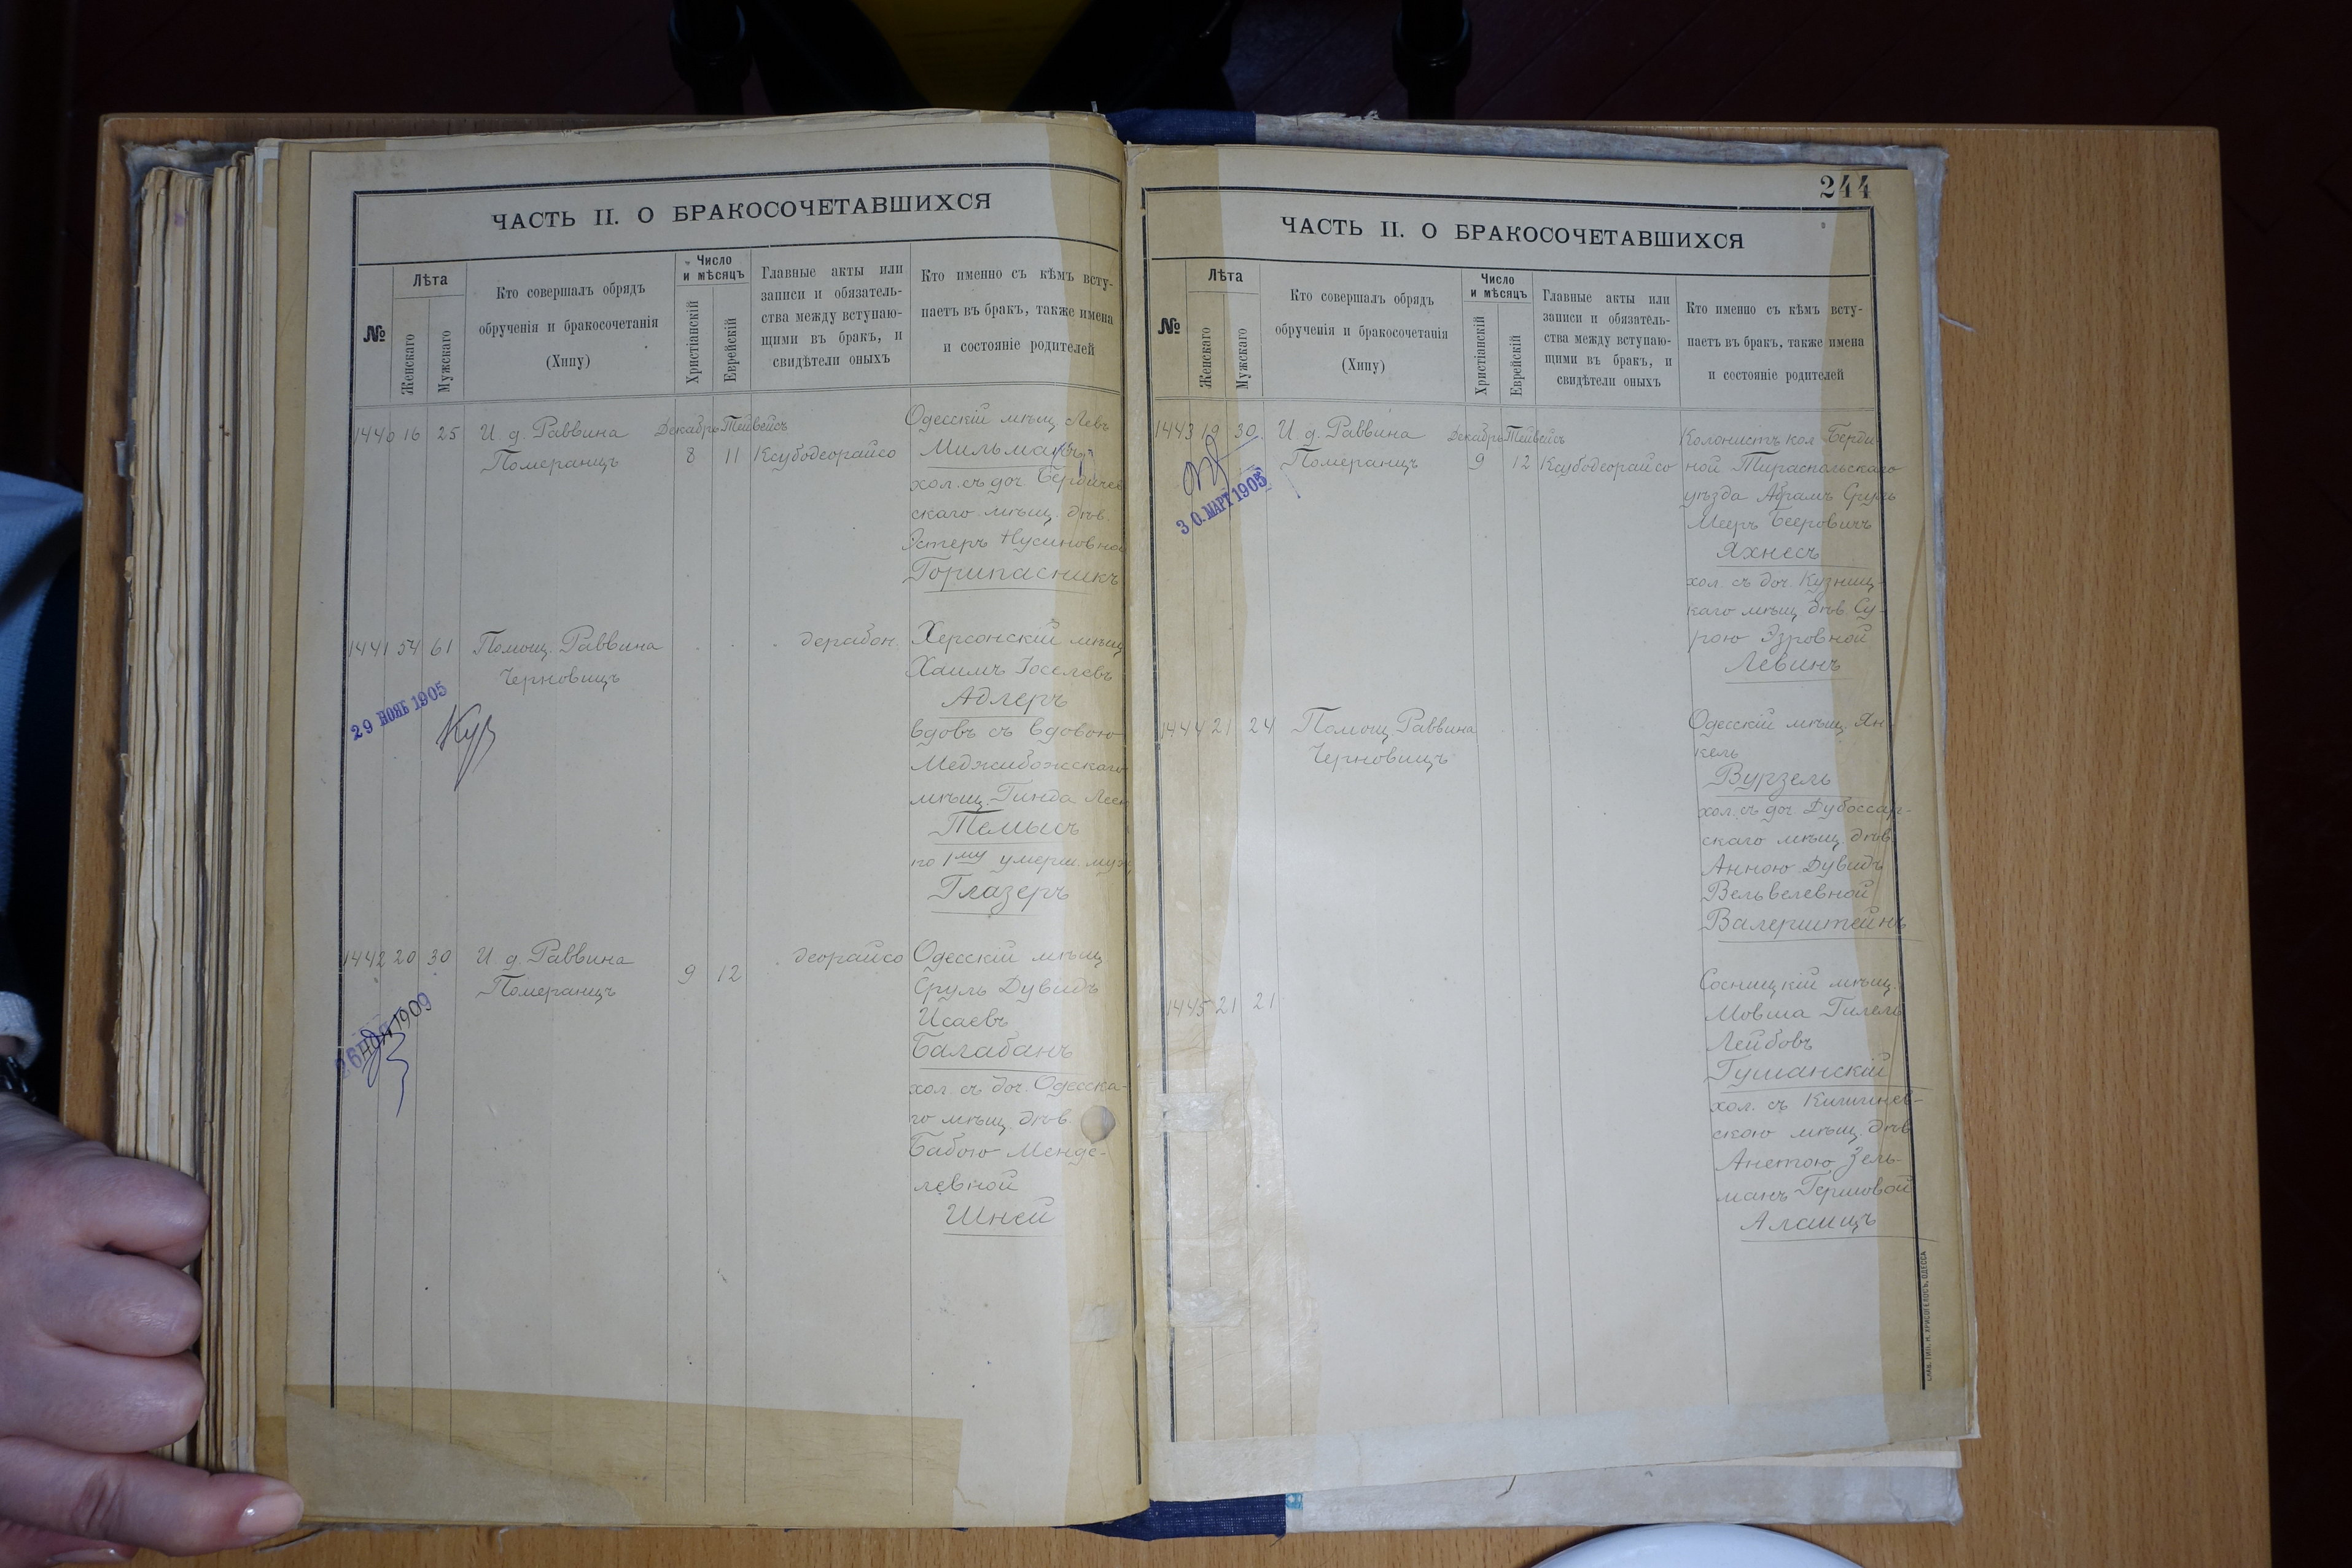 ЧАСТЬ II. О БРАКОСОЧЕТАВШИХСЯ
№
Лѣта
Женскаго
Мужскаго
Кто совершалъ обрядъ
обрученія и бракосочетанія
(Хипу)
Число
и мѣсяцъ
Христіанскій
Еврейскій
Главные акты или
записи и обязатель-
ства между вступаю-
щими въ бракъ, и
свидѣтели оныхъ
Кто именно съ кѣмъ всту-
паетъ въ бракъ, также имена
и состояніе родителей
1440 16 25 И. д. Раввина Декабрь Тейвейсъ
Померанцъ 8 11 Ксубодеорайсо
Одесскій мѣщ. Левъ
Мильманъ
хол. съ доч. Бердичев
скаго мѣщ. дѣв.
Эстеръ Нусиновной
Горипасникъ
1441 54 61 Помощ. Раввина дерабон.
Черновицъ
29 НОЯБ 1905
Херсонскій мѣщ
Хаимъ Іоселевъ
Адлеръ
вдовъ съ вдовою
Меджибожскаго
мѣщ. Гинда
Темысъ
по 1му умерш. мужу
Глазеръ
1442 20 30 И. д. Раввина 9 12 деорайсо
Померанцъ
1909
Одесскій мѣщ.
Сруль Дувидъ
Исаевъ
Балабанъ
хол. съ доч. Одесска-
го мѣщ. дѣв.
Бабою Менде-
левной
Шней
244
ЧАСТЬ II. О БРАКОСОЧЕТАВШИХСЯ
№
Лѣта
Женскаго
Мужскаго
Кто совершалъ обрядъ
обрученія и бракосочетанія
(Хипу)
Число
и мѣсяцъ
Христіанскій
Еврейскій
Главные акты или
записи и обязатель-
ства между вступаю-
щими въ бракъ, и
свидѣтели оныхъ
Кто именно съ кѣмъ всту-
паетъ въ бракъ, также имена
и состояніе родителей
1443 19 30 И. д. Раввина Декабрь Тейвейсъ
Померанцъ 9 12 Ксубодеорайсо
30. МАРТ 1905
Колонистъ кол. Берди
ной Тираспольскаго
уѣзда Абрамъ Сруль
Мееръ Бееровичъ
Яхнесъ
хол. съ доч. Кузниц-
каго мѣщ. дѣв. Су-
рою Эзровной
Левинъ
1444 21 24 Помощ. Раввина
Черновицъ
Одесскій мѣщ. Ян-
кель
Вурзель
хол. съ доч. Дубоссар-
скаго мѣщ. дѣв.
Анною Дувидъ
Вельвелевной
Валерштейнъ
1445 21 21
Сосницкій мѣщ.
Мовша Гилель
Лейбовъ
Гуманскій
хол. съ Кишинев-
скою мѣщ. дѣв
Анетою Зель-
манъ Гершовой
Алаицъ